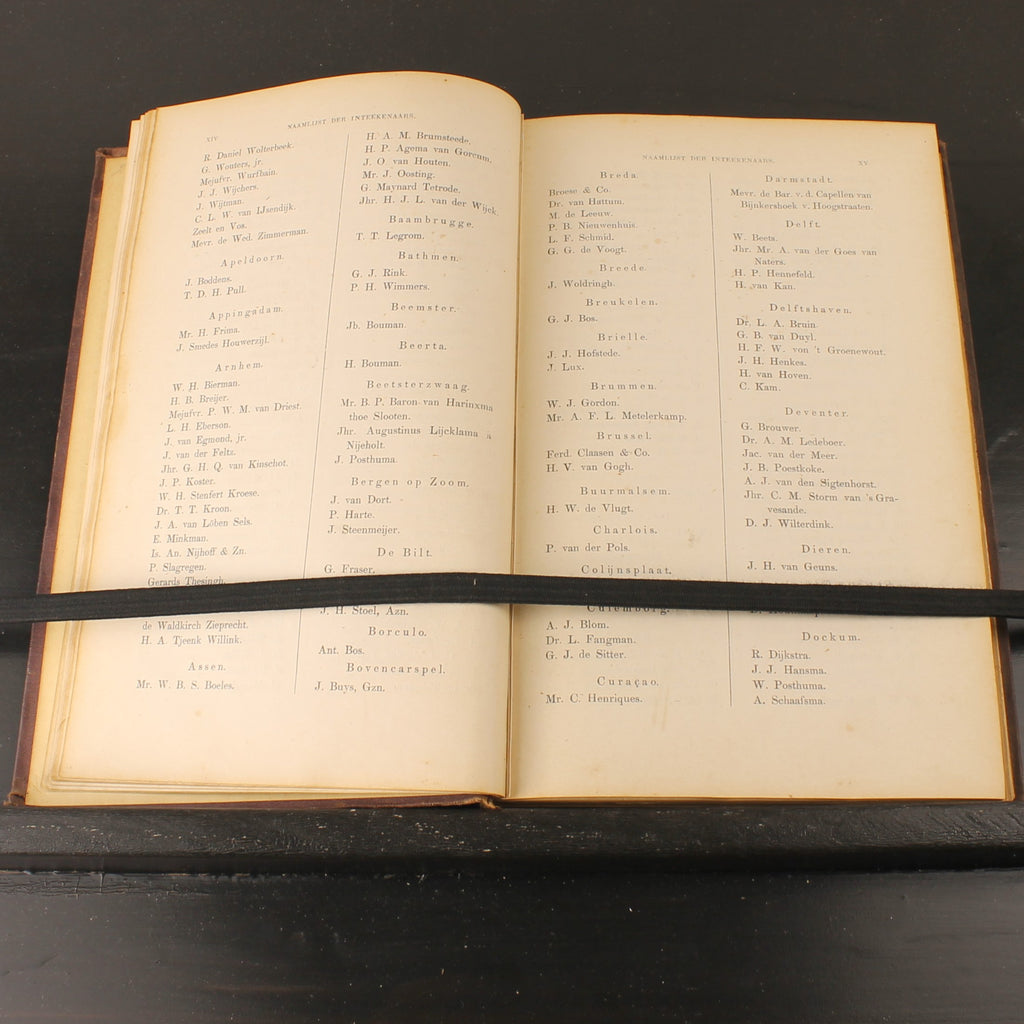 XIV
NAAMLIJST DER INTEEKENAARS.
R. Daniel Wolterbeek.
G. Wouters, jr.
Mejufvr. Wurfbain.
J. J. Wijchers.
J. Wijtman.
C. L. W. van IJsendijk.
Zeelt en Vos.
Mevr. de Wed. Zimmerman.
Apeldoorn.
J. Boddens.
T. D. H. Pull.
Appingadam.
Mr. H. Frima.
J. Smedes Houwerzijl.
Arnhem.
W. H. Bierman.
H. B. Breijer.
Mejufvr. P. W. M. van Driest.
L. H. Eberson.
J. van Egmond, jr.
J. van der Feltz.
Jhr. G. H. Q. van Kinschot.
J. P. Koster.
W. H. Stenfert Kroese.
Dr. T. T. Kroon.
J. A. van Löben Sels.
E. Minkman.
Is. An. Nijhoff & Zn.
P. Slagregen.
Gerards Thesingh.
de Waldkirch Zieprecht.
H. A. Tjeenk Willink.
Assen.
Mr. W. B. S. Boeles.
H. A. M. Brumsteede.
H. P. Agema van Gorcum.
J. O. van Houten.
Mr. J. Oosting.
G. Maynard Tetrode.
Jhr. H. J. L. van der Wijck.
Baambrugge.
T. T. Legrom.
Bathmen.
G. J. Rink.
P. H. Wimmers.
Beemster.
Jb. Bouman.
Beerta.
H. Bouman.
Beetsterzwaag.
Mr. B. P. Baron van Harinxma
thoe Slooten.
Jhr. Augustinus Lijcklama à
Nijeholt.
J. Posthuma.
Bergen op Zoom.
J. van Dort.
P. Harte.
J. Steenmeijer.
De Bilt.
G. Fraser.
J. H. Stoel, Azn.
Borculo.
Ant. Bos.
Bovencarspel.
J. Buys, Gzn.
NAAMLIJST DER INTEEKENAARS.
XV
Breda.
Broese & Co.
Dr. van Hattum.
M. de Leeuw.
P. B. Nieuwenhuis.
L. F. Schmid.
G. G. de Voogt.
Breede.
J. Woldringh.
Breukelen.
G. J. Bos.
Brielle.
J. J. Hofstede.
J. Lux.
Brummen.
W. J. Gordon.
Mr. A. F. L. Metelerkamp.
Brussel.
Ferd. Claasen & Co.
H. V. van Gogh.
Buurmalsem.
H. W. de Vlugt.
Charlois.
P. van der Pols.
Colijnsplaat.
Culemborg.
A. J. Blom.
Dr. L. Fangman.
G. J. de Sitter.
Curaçao.
Mr. C. Henriques.
Darmstadt.
Mevr. de Bar. v. d. Capellen van
Bijnkershoek v. Hoogstraaten.
Delft.
W. Beets.
Jhr. Mr. A. van der Goes van
Naters.
H. P. Hennefeld.
H. van Kan.
Delftshaven.
Dr. L. A. Bruin.
G. B. van Duyl.
H. F. W. von 't Groenewout.
J. H. Henkes.
H. van Hoven.
C. Kam.
Deventer.
G. Brouwer.
Dr. A. M. Ledeboer.
Jac. van der Meer.
J. B. Poestkoke.
A. J. van den Sigtenhorst.
Jhr. C. M. Storm van 's Gra-
vesande.
D. J. Wilterdink.
Dieren.
J. H. van Geuns.
Dockum.
R. Dijkstra.
J. J. Hansma.
W. Posthuma.
A. Schaafsma.